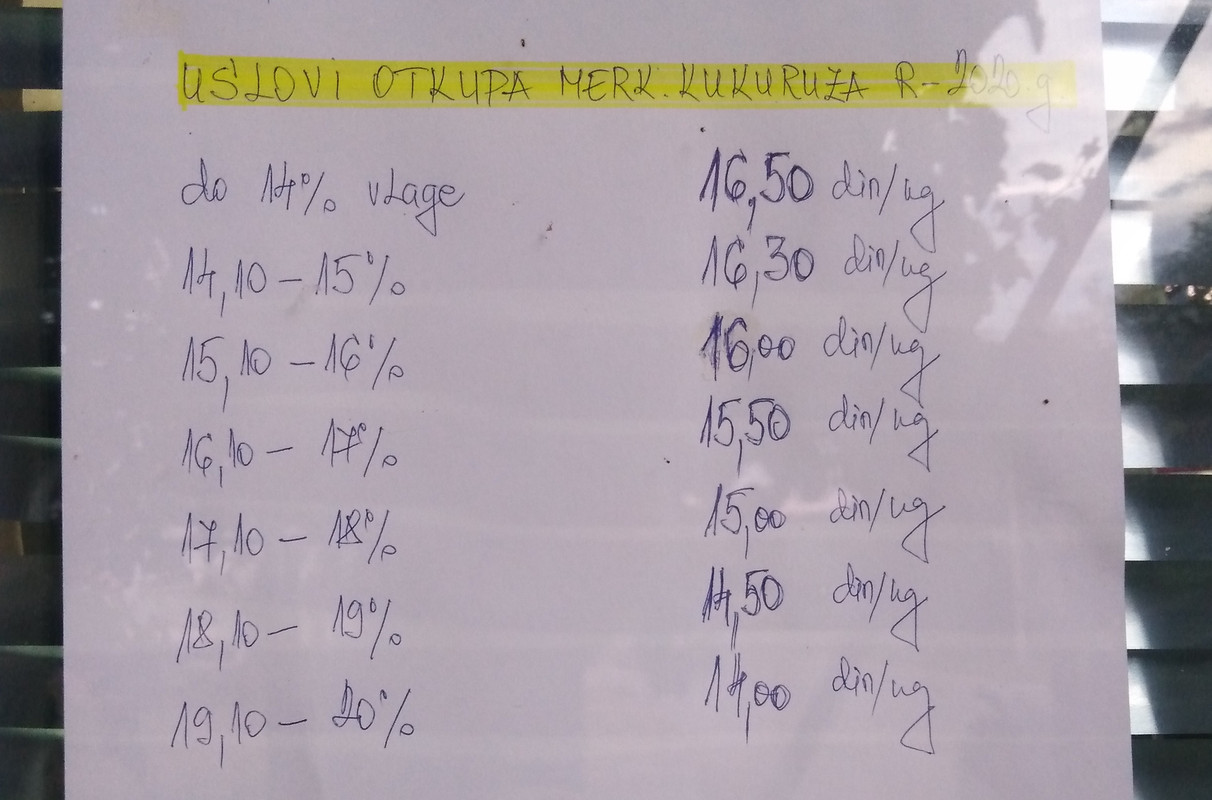 USLOVI OTKUPA MERK. KUKURUZA R-2020.g
do 14% vlage 16,50 din/kg
14,10 - 15% 16,30 din/kg
15,10 - 16% 16,00 din/kg
16,10 - 17% 15,50 din/kg
17,10 - 18% 15,00 din/kg
18,10 - 19% 14,50 din/kg
19,10 - 20% 14,00 din/kg